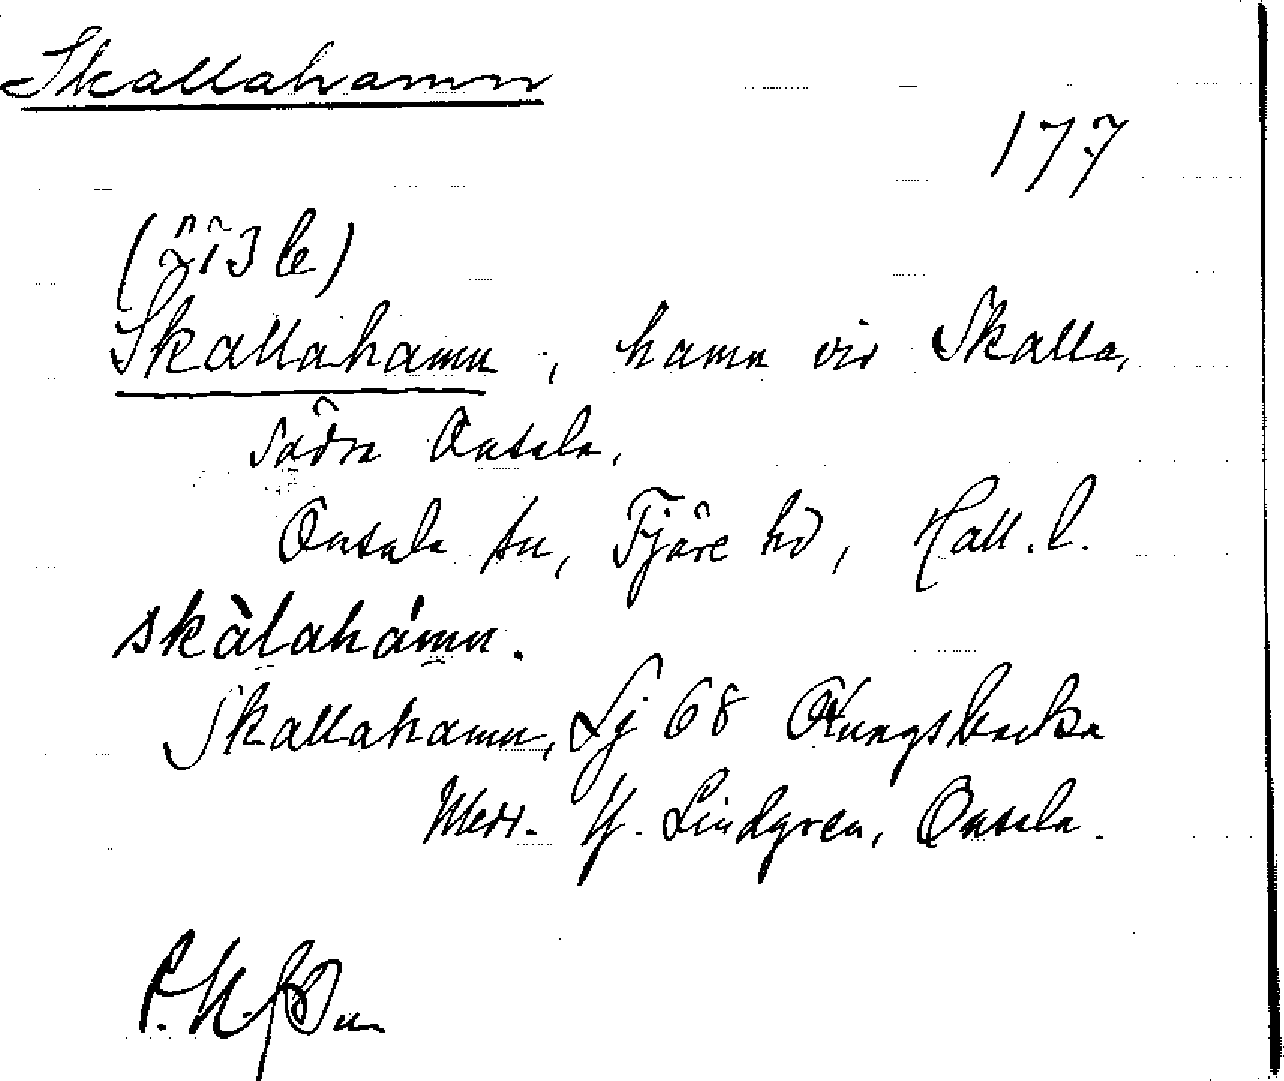 Skallahamn
177
(213 b)
Skallahamn, hamn vid Skalla,
Södra Onsala.
Onsala sn, Fjäre hd, Hall. l.
skàlahámn.
Skallahamn, Lj 68 Kungsbacka
Medd. H. Lindgren, Onsala.